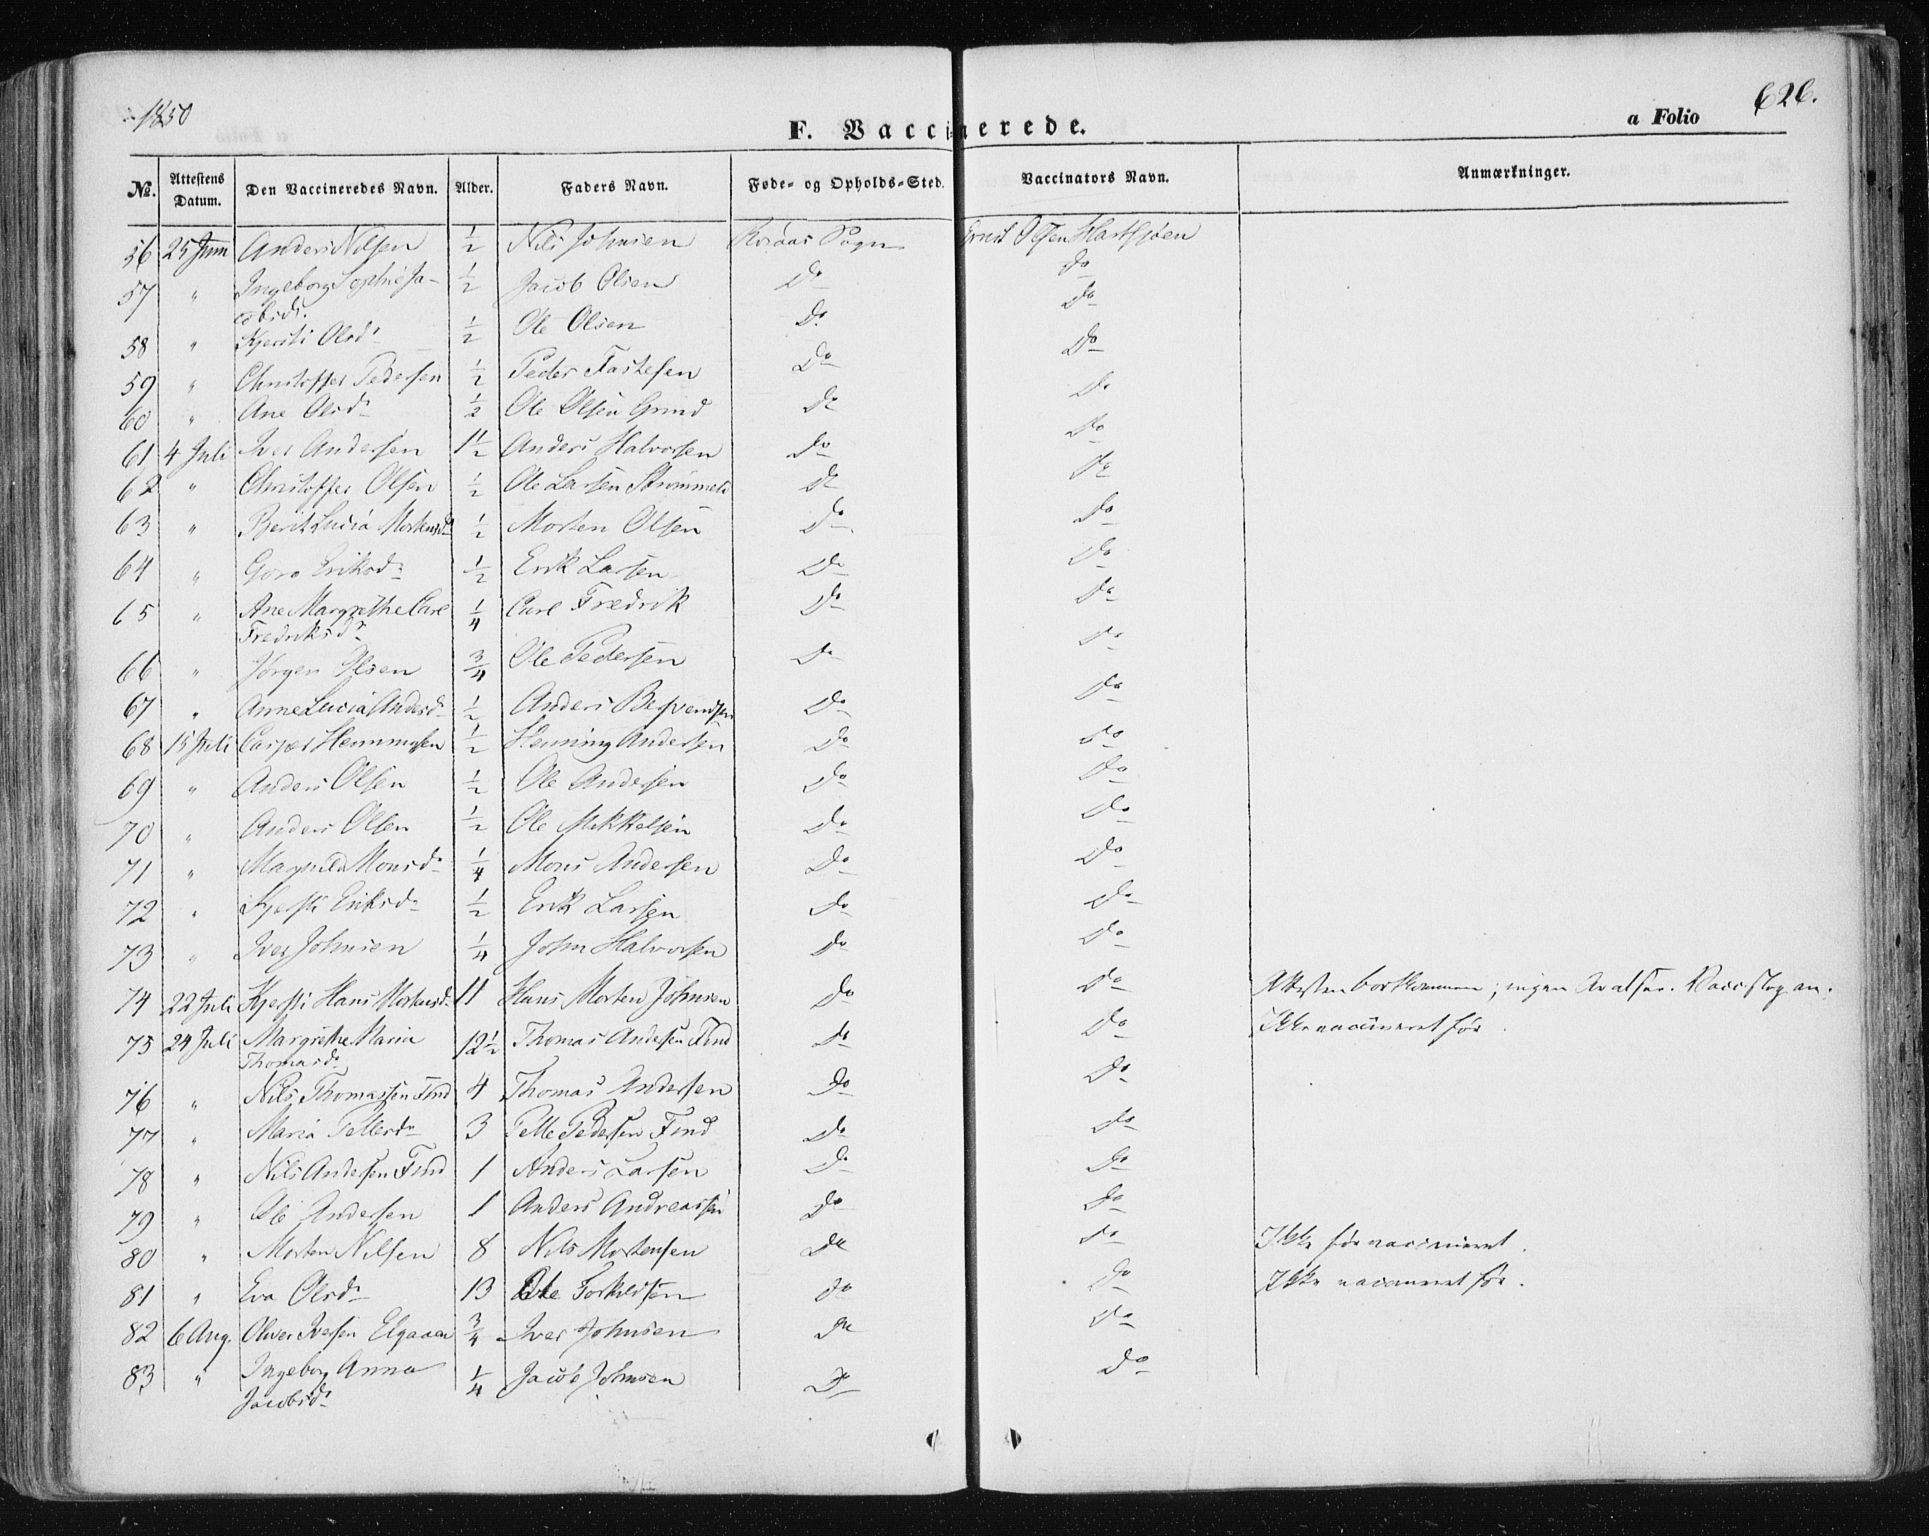 1850
626.
F. Vaccinerede.
a Folio
No. Attestens Datum. Den Vaccineredes Navn. Alder. Faders Navn. Føde- og Opholds-Sted. Vaccinators Navn. Anmærkninger.
56 25 Juni Anders Nilsen 1/2 Nils Johnsen Røraas Sogn Ernst Olsen
57 " Ingeborg Sophie Ja- 1/2 Jacob Olsen Do Do
cobsdr.
58 " Kjersti Olsdr 1/2 Ole Olsen Do Do
59 " Christoffer Pedersen 1/2 Peder Fastesen Do Do
60 " Ane Olsdr 1/2 Ole Olsen Grind Do Do
61 4 Juli Iver Andersen 11/2 Anders Halvorsen Do Do
62 " Christoffer Olsen 1/2 Ole Larsen Do Do
63 " Berit Lucia Mortensdr 1/2 Morten Olsen Do Do
64 " Goro Eriksdr 1/2 Erik Larsen Do Do
65 " Ane Margrethe Carl 1/4 Carl Fredrik Do Do
Fredriksdr
66 " Jørgen Olsen 3/4 Ole Pedersen Do Do
67 " Anne Lucia Andersdr 1/2 Anders Do Do
68 15 Juli Casper Henningsen 1/2 Henning Andersen Do Do
69 " Anders Olsen 1/2 Ole Andersen Do Do
70 " Anders Olsen 1/2 Ole Mikkelsen Do Do
71 " Monsdr 1/4 Mons Andersen Do Do
72 " Kjersti Eriksdr 1/2 Erik Larsen Do Do
73 " Iver Johnsen 1/4 John Halvorsen Do Do
74 22 Juli Kjersti Hans Mortensdr 11 Hans Morten Johnsen Do Do Attesten bortkommen; ingen
75 24 Juli Margrethe Maria 12 1/2 Thomas Andersen Find Do Do Ikke vaccineret før.
Thomasdr
76 " Nils Thomassen Find 4 Thomas Andersen Do Do
77 " Maria Pellesdr 3 Pelle Pedersen Find Do Do
78 " Nils Andersen Find 1 Anders Larsen Do Do
79 " Ole Andersen 1 Anders Andreassen Do Do
80 " Morten Nilsen 8 Nils Mortensen Do Do Ikke før vaccineret.
81 " Eva Olsdr 13 Ole Do Do Ikke vaccineret før.
82 6 Aug. Oliver Iversen Elgaaen 3/4 Iver Johnsen Do Do
83 " Ingeborg Anna 1/4 Jacob Johnsen Do Do
Jacobsdr